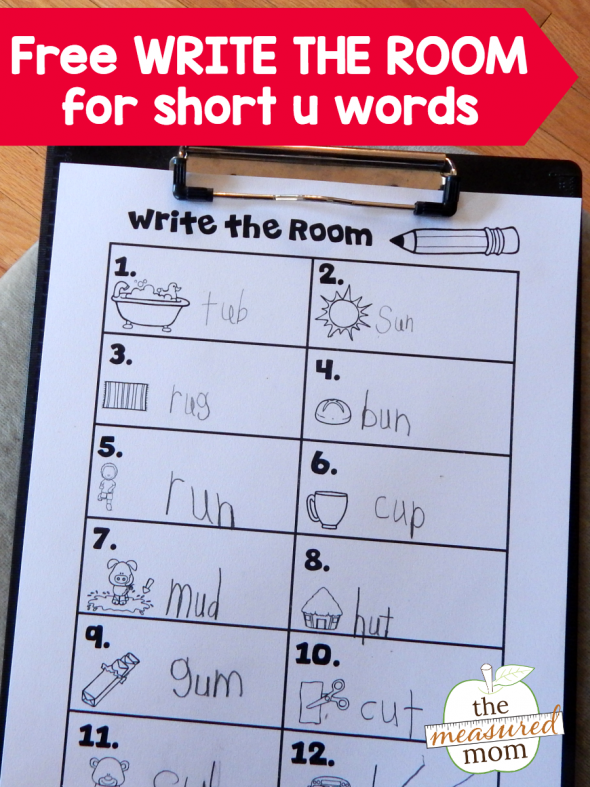 Free WRITE THE ROOM
for short u words
Write the Room
1.
tub
2.
Sun
3.
rug
4.
bun
5.
run
6.
cup
7.
mud
8.
hut
9.
gum
10.
cut
11.
12.
the
measured
mom